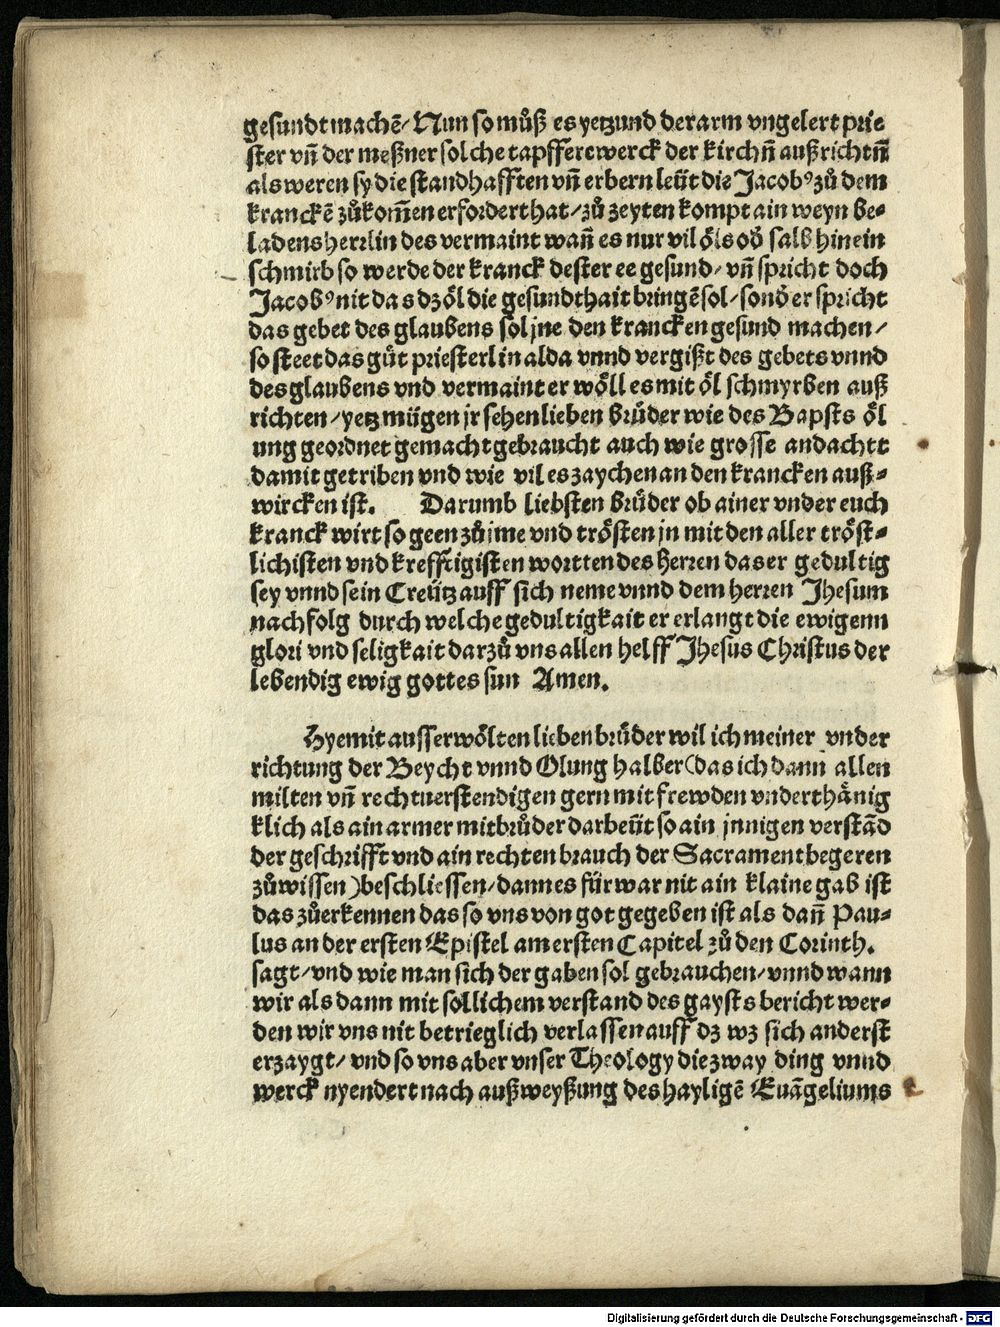 gesundt machẽ/ Nun so můß es yetzund der arm vngelert prie
ster vñ der meßner solche tapffere werck der kirchñ außrichtñ
als weren sy die standhafften vñ erbern leüt die Jacobꝰ zů dem
kranckẽ zůkom̃en erfordert hat/ zů zeyten kompt ain weyn be⸗
ladens herrlin des vermaint wañ es nur vil öls od̓ salb hinein
schmirb so werde der kranck dester ee gesund/ vñ spricht doch
Jacobꝰ nit das dz öl die gesundthait bringẽ sol/ sond̓ er spricht
das gebet des glaubens sol jne den krancken gesund machen/
so steet das gůt priesterlin alda vnnd vergißt des gebets vnnd
des glaubens vnd vermaint er wöll es mit öl schmyrben auß
richten/ yetz mügen jr sehen lieben brůder wie des Bapsts öl
ung geordnet gemacht gebraucht auch wie grosse andachtt
damit getriben vnd wie vil es zaychen an den krancken auß⸗
wircken ist. Darumb liebsten brůder ob ainer vnder euch
kranck wirt so geen zů jme vnd trösten jn mit den aller tröst⸗
lichisten vnd krefftigisten wortten des herren das er gedultig
sey vnnd sein Creütz auff sich neme vnnd dem herren Jhesum
nachfolg durch welche gedultigkait er erlangt die ewigenn
glori vnd seligkait darzů vns allen helff Jhesus Christus der
lebendig ewig gottes sun Amen.
Hyemit ausserwölten lieben brůder wil ich meiner vnder
richtung der Beycht vnnd Olung halber (das ich dann allen
milten vñ recht verstendigen gern mit frewden vnderthänig
klich als ain armer mitbrůder darbeüt so ain jnnigen verstãd
der geschrifft vnd ain rechten brauch der Sacrament begeren
zů wissen) beschliessen/ dann es für war nit ain klaine gab ist
das zů erkennen das so vns von got gegeben ist als dañ Pau⸗
lus an der ersten Epistel am ersten Capitel zů den Corinth.
sagt/ vnd wie man sich der gaben sol gebrauchen/ vnnd wann
wir als dann mit sollichem verstand des gaysts bericht wer⸗
den wir vns nit betrieglich verlassen auff dz wz sich anderst
erzaygt/ vnd so vns aber vnser Theology die zway ding vnnd
werck nyendert nach außweyßung des hayligẽ Euãgeliums
Digitalisierung gefördert durch die Deutsche Forschungsgemeinschaft - DFG